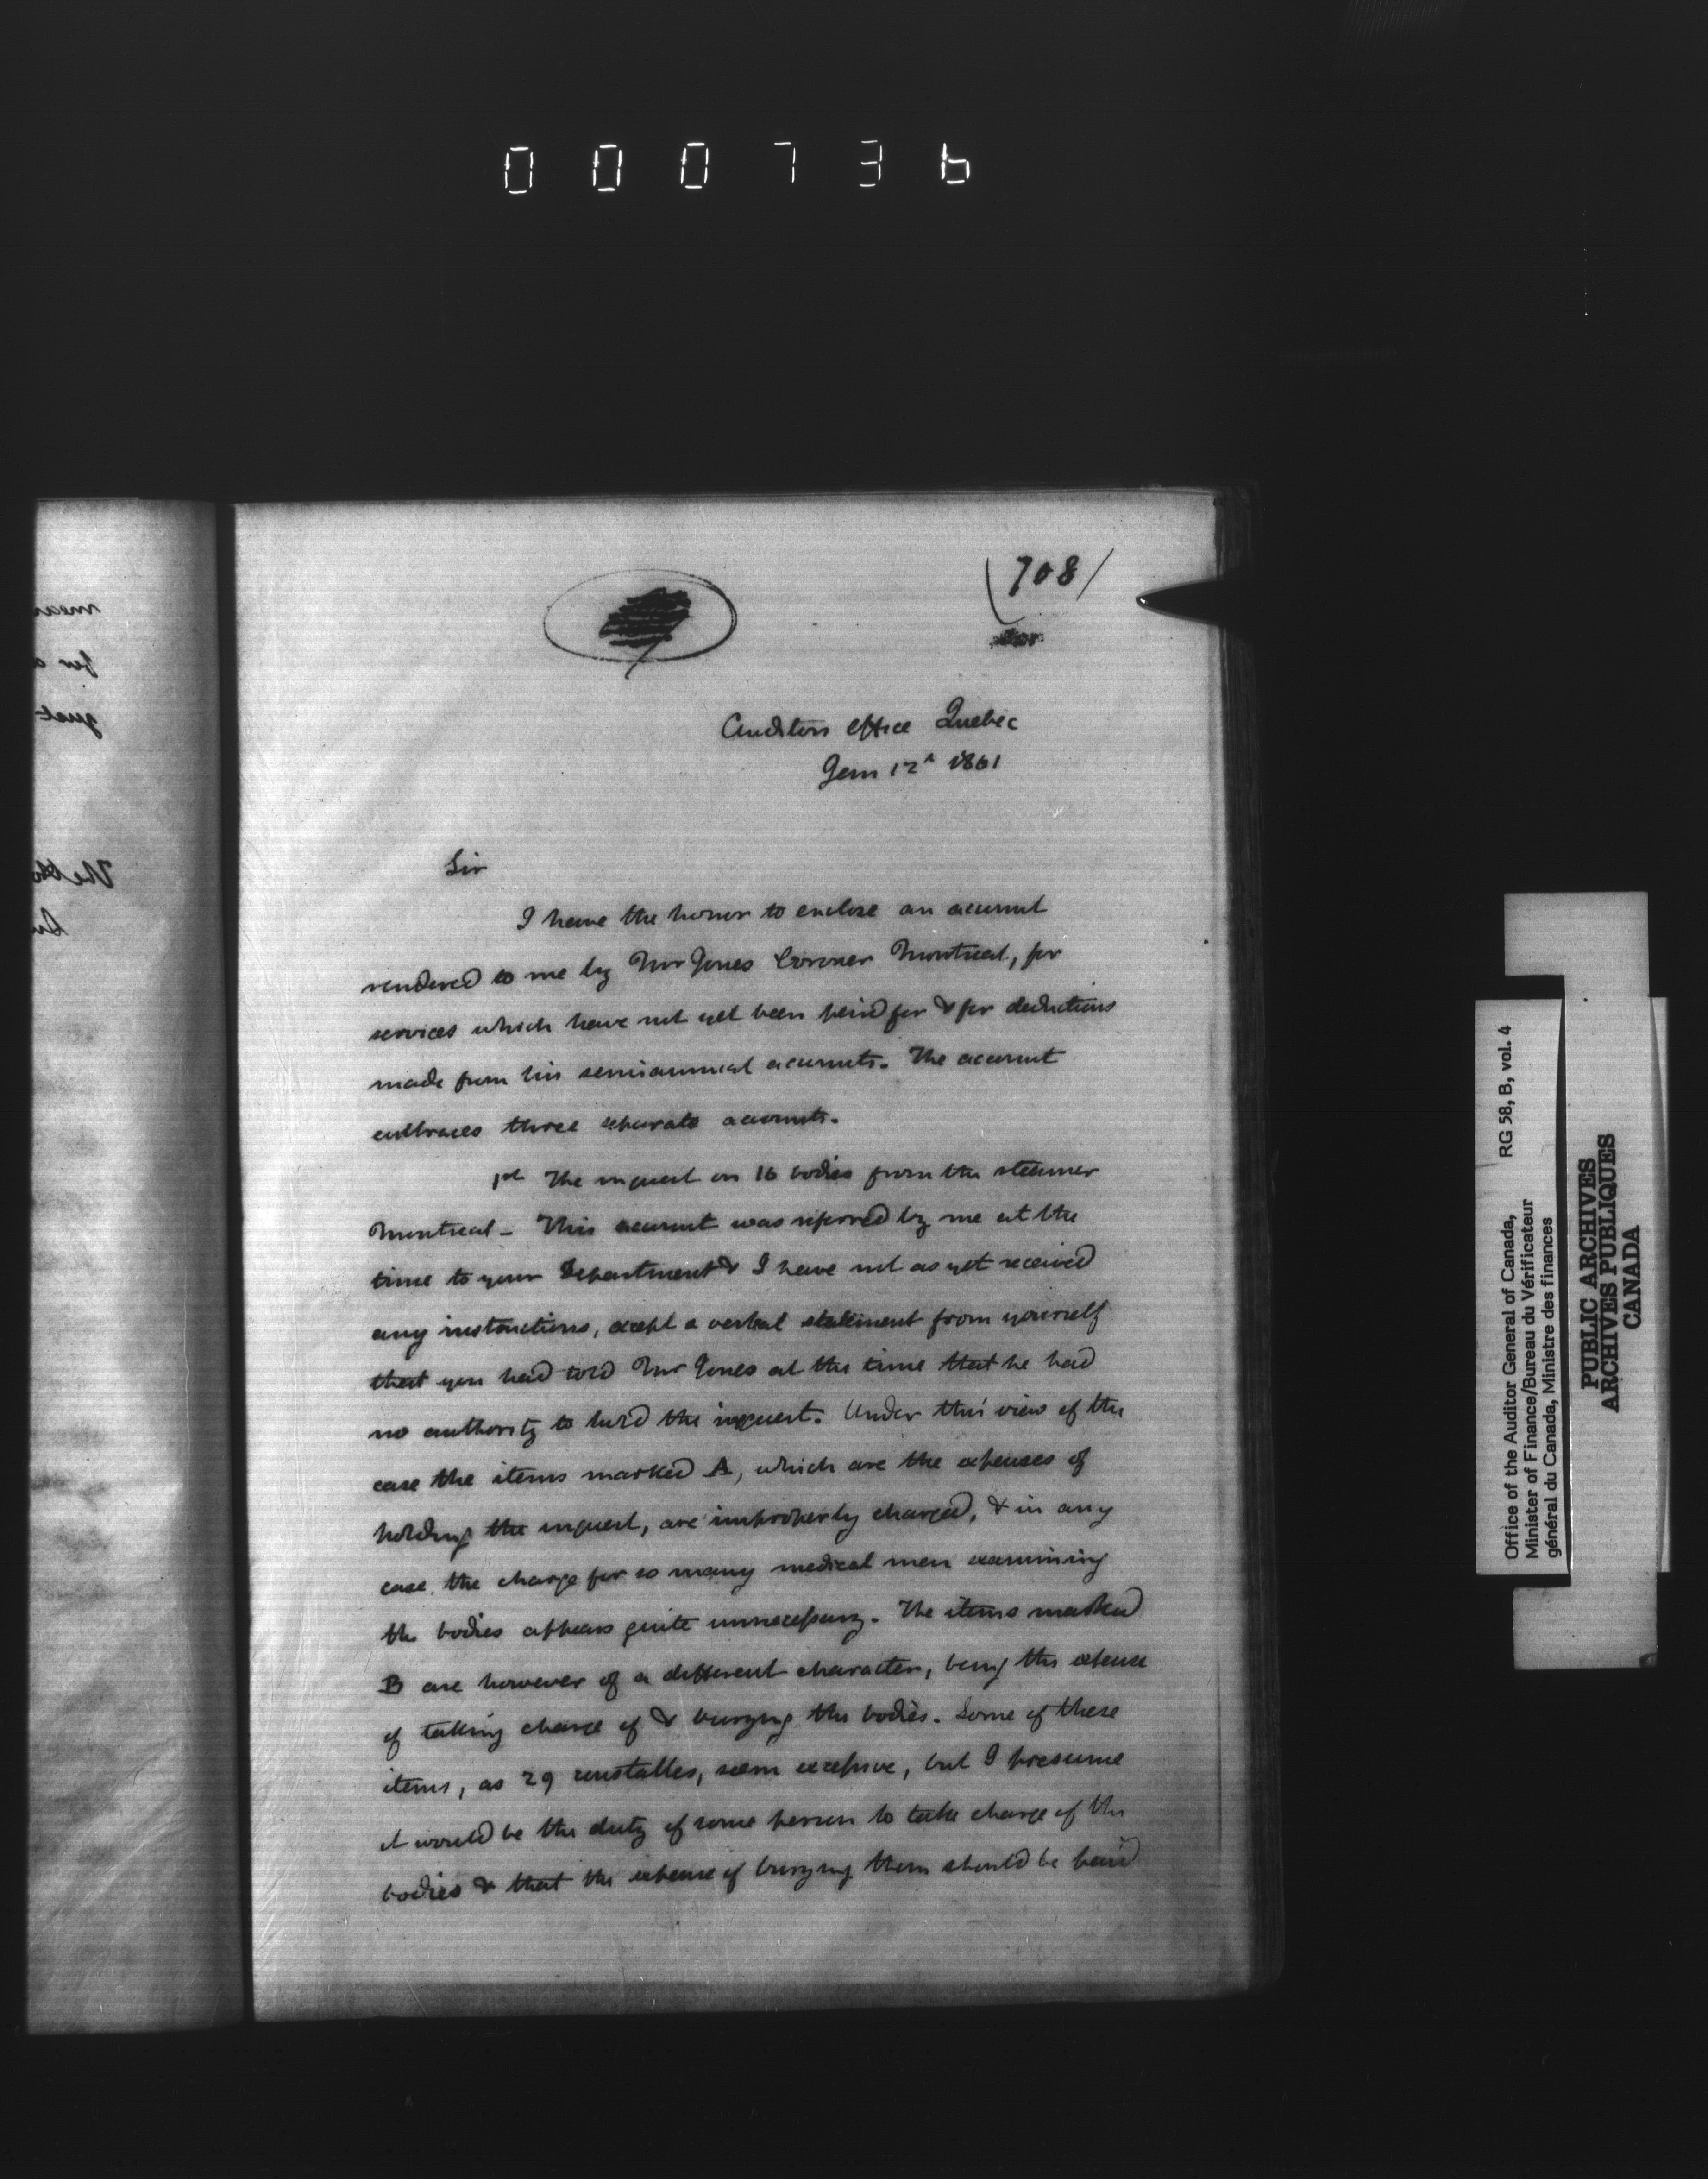 000736
(708)
Auditors Office Quebec
Jan 12th 1861
Sir
I have the honor to enclose an account
rendered to me by Mr Jones Coroner Montreal, for
services which have not yet been paid for & for deductions
made from his semiannual accounts. The account
embraces three separate accounts.
1st The inquest on 16 bodies from the steamer
Montreal - This account was referred by me at the
time to your Department & I have not as yet received
any instructions, except a verbal statement from yourself
that you had told Mr Jones at the time that he had
no authority to hold the inquest. Under this view of the
case the items marked A, which are the expenses of
holding the inquest, are improperly charged, & in any
case the charge for so many medical men examining
the bodies appears quite unnecessary. The items marked
B are however of a different character, being the expense
of taking charge of & burying the bodies. Some of these
items, as 29 constables, seem excessive, but I presume
it would be the duty of some person to take charge of the
bodies & that the expense of burying them should be paid
Office of the Auditor General of Canada, RG 58, B, vol. 4
Minister of Finance/Bureau du Vérificateur
général du Canada, Ministre des finances
PUBLIC ARCHIVES
ARCHIVES PUBLIQUES
CANADA